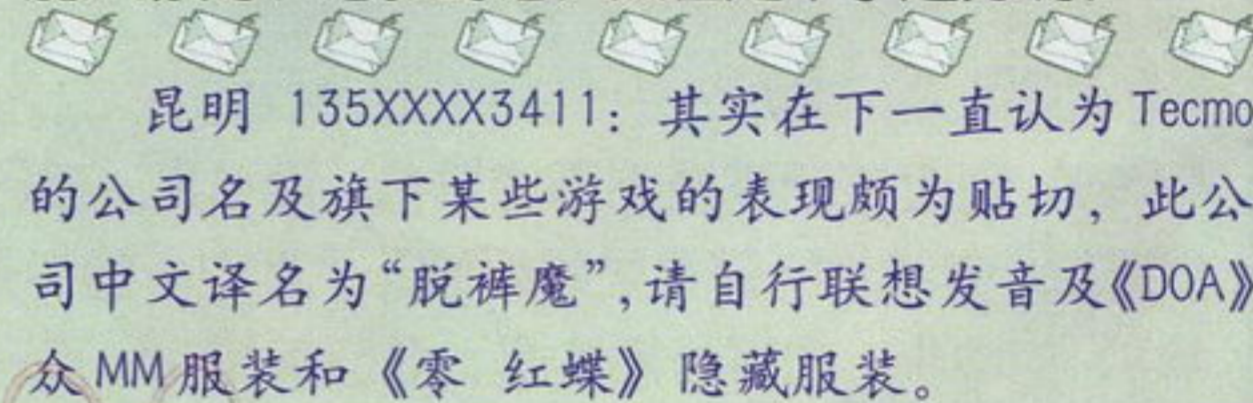 昆明 135XXXX3411：其实在下一直认为 Tecmo
的公司名及旗下某些游戏的表现颇为贴切，此公
司中文译名为“脱裤魔”,请自行联想发音及《DOA》
众 MM 服装和《零 红蝶》隐藏服装。